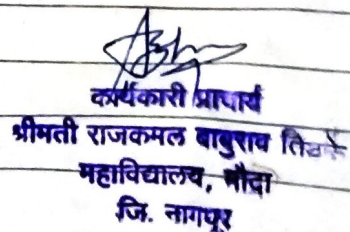 कार्यकारी प्राचार्य
श्रीमती राजकमल बाबुराव तिडके
महाविद्यालय, मौदा
जि. नागपूर